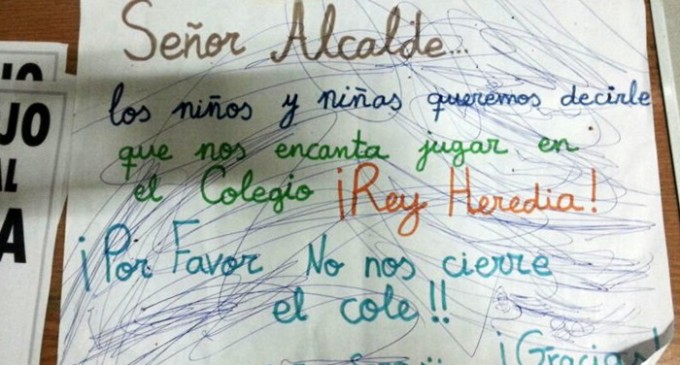 Señor Alcalde...
los niños y niñas queremos decirle
que nos encanta jugar en
el Colegio ¡Rey Heredia!
¡Por Favor No nos cierre
el cole!!
¡Gracias!
JO
AL
A